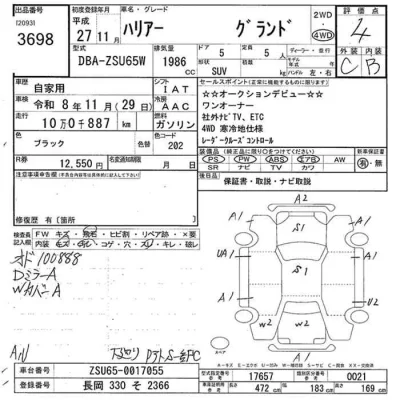 出品番号 初度登録年月 車名・グレード 2WD 評価点
[20931]
3698 平成 27 11月 ハリアー グランド 4WD 4
型式 排気量 ドア 定員 外装 内装
DBA-ZSU65W 1986 5 5人 C B
形状 SUV
車歴 自家用 シフト IAT セールスポイント
車検 令和 8年 11月 (29日) 冷房 AAC ☆☆オークションデビュー☆☆
ワンオーナー
走行 10万0千887 km 燃料 ガソリン 社外ナビTV、ETC
4WD 寒冷地仕様
色 ブラック 色替 色コード 202 レーダークルーズコントロール
R 12,550 円 名変期限 月 日 装備品 PS PW ABS エアB AW 有・無
SR ナビ TV カワ
注意事項 後日品 保証書・取説・ナビ取説
修復歴 有 [箇所 ]
検査員記入欄 FW キズ・飛石・ヒビ割・リペア跡・×要
内装 キズ・コゲ・穴・スレ・キレ・破レ
オド 100888
DミラーA
WカバーA
A/U 下廻り
A2
A1 A1
S1
UA1 A1
S1
A1 U2
W2 W2
A1
スペア
車台番号 ZSU65-0017055 型式指定番号 17657 類別区分番号 0021
登録番号 長岡 330 そ 2366 長さ 472 cm 幅 183 cm 高さ 169 cm